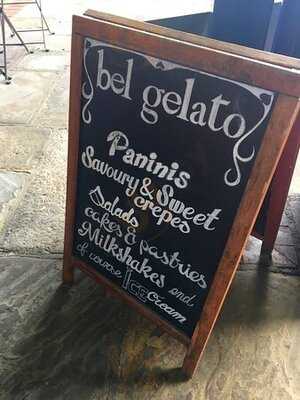 bel gelato
Paninis
Savoury & Sweet
crepes
Salads
cakes & pastries
Milkshakes and
of course Icecream